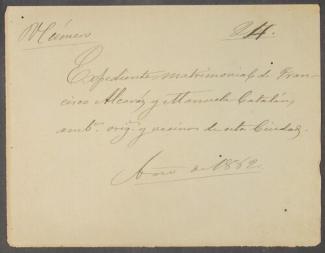 Número 24.
Expediente matrimonial de Fran-
cisco Alcaráz y Manuela Catalán,
amb.ˢ orig.ˢ y vecinos de esta Ciudad.
Año de 1862.